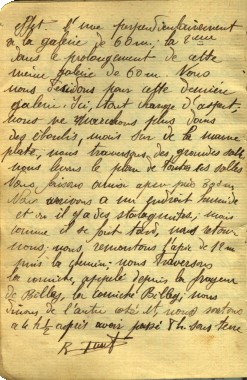 effet. L'une perpendiculairement
à la galerie de 66 m, la 2eme
dans le prolongement de cette
même galerie de 60 m. Nous
nous pour cette dernière
galerie. Ici, tout change d'aspect,
nous ne marchons plus dans
des éboulis, mais sur de la marne
plate, nous traversons des grandes salles
nous levons le plan de toutes ses salles
Nous faisons ainsi à peu près
Nous arrivons a un endroit humide
et où il y a des stalagmites, mais
comme il se fait tard, nous
nous, nous remontons l'apic de 12 m
puis la chemin, nous traversons
la corniche, appelé depuis la frayeur
de Billes, la corniche Billes, nous
de l'autre coté et nous sortons
à 4 h ½ après avoir passé 7 h. sous terre
R